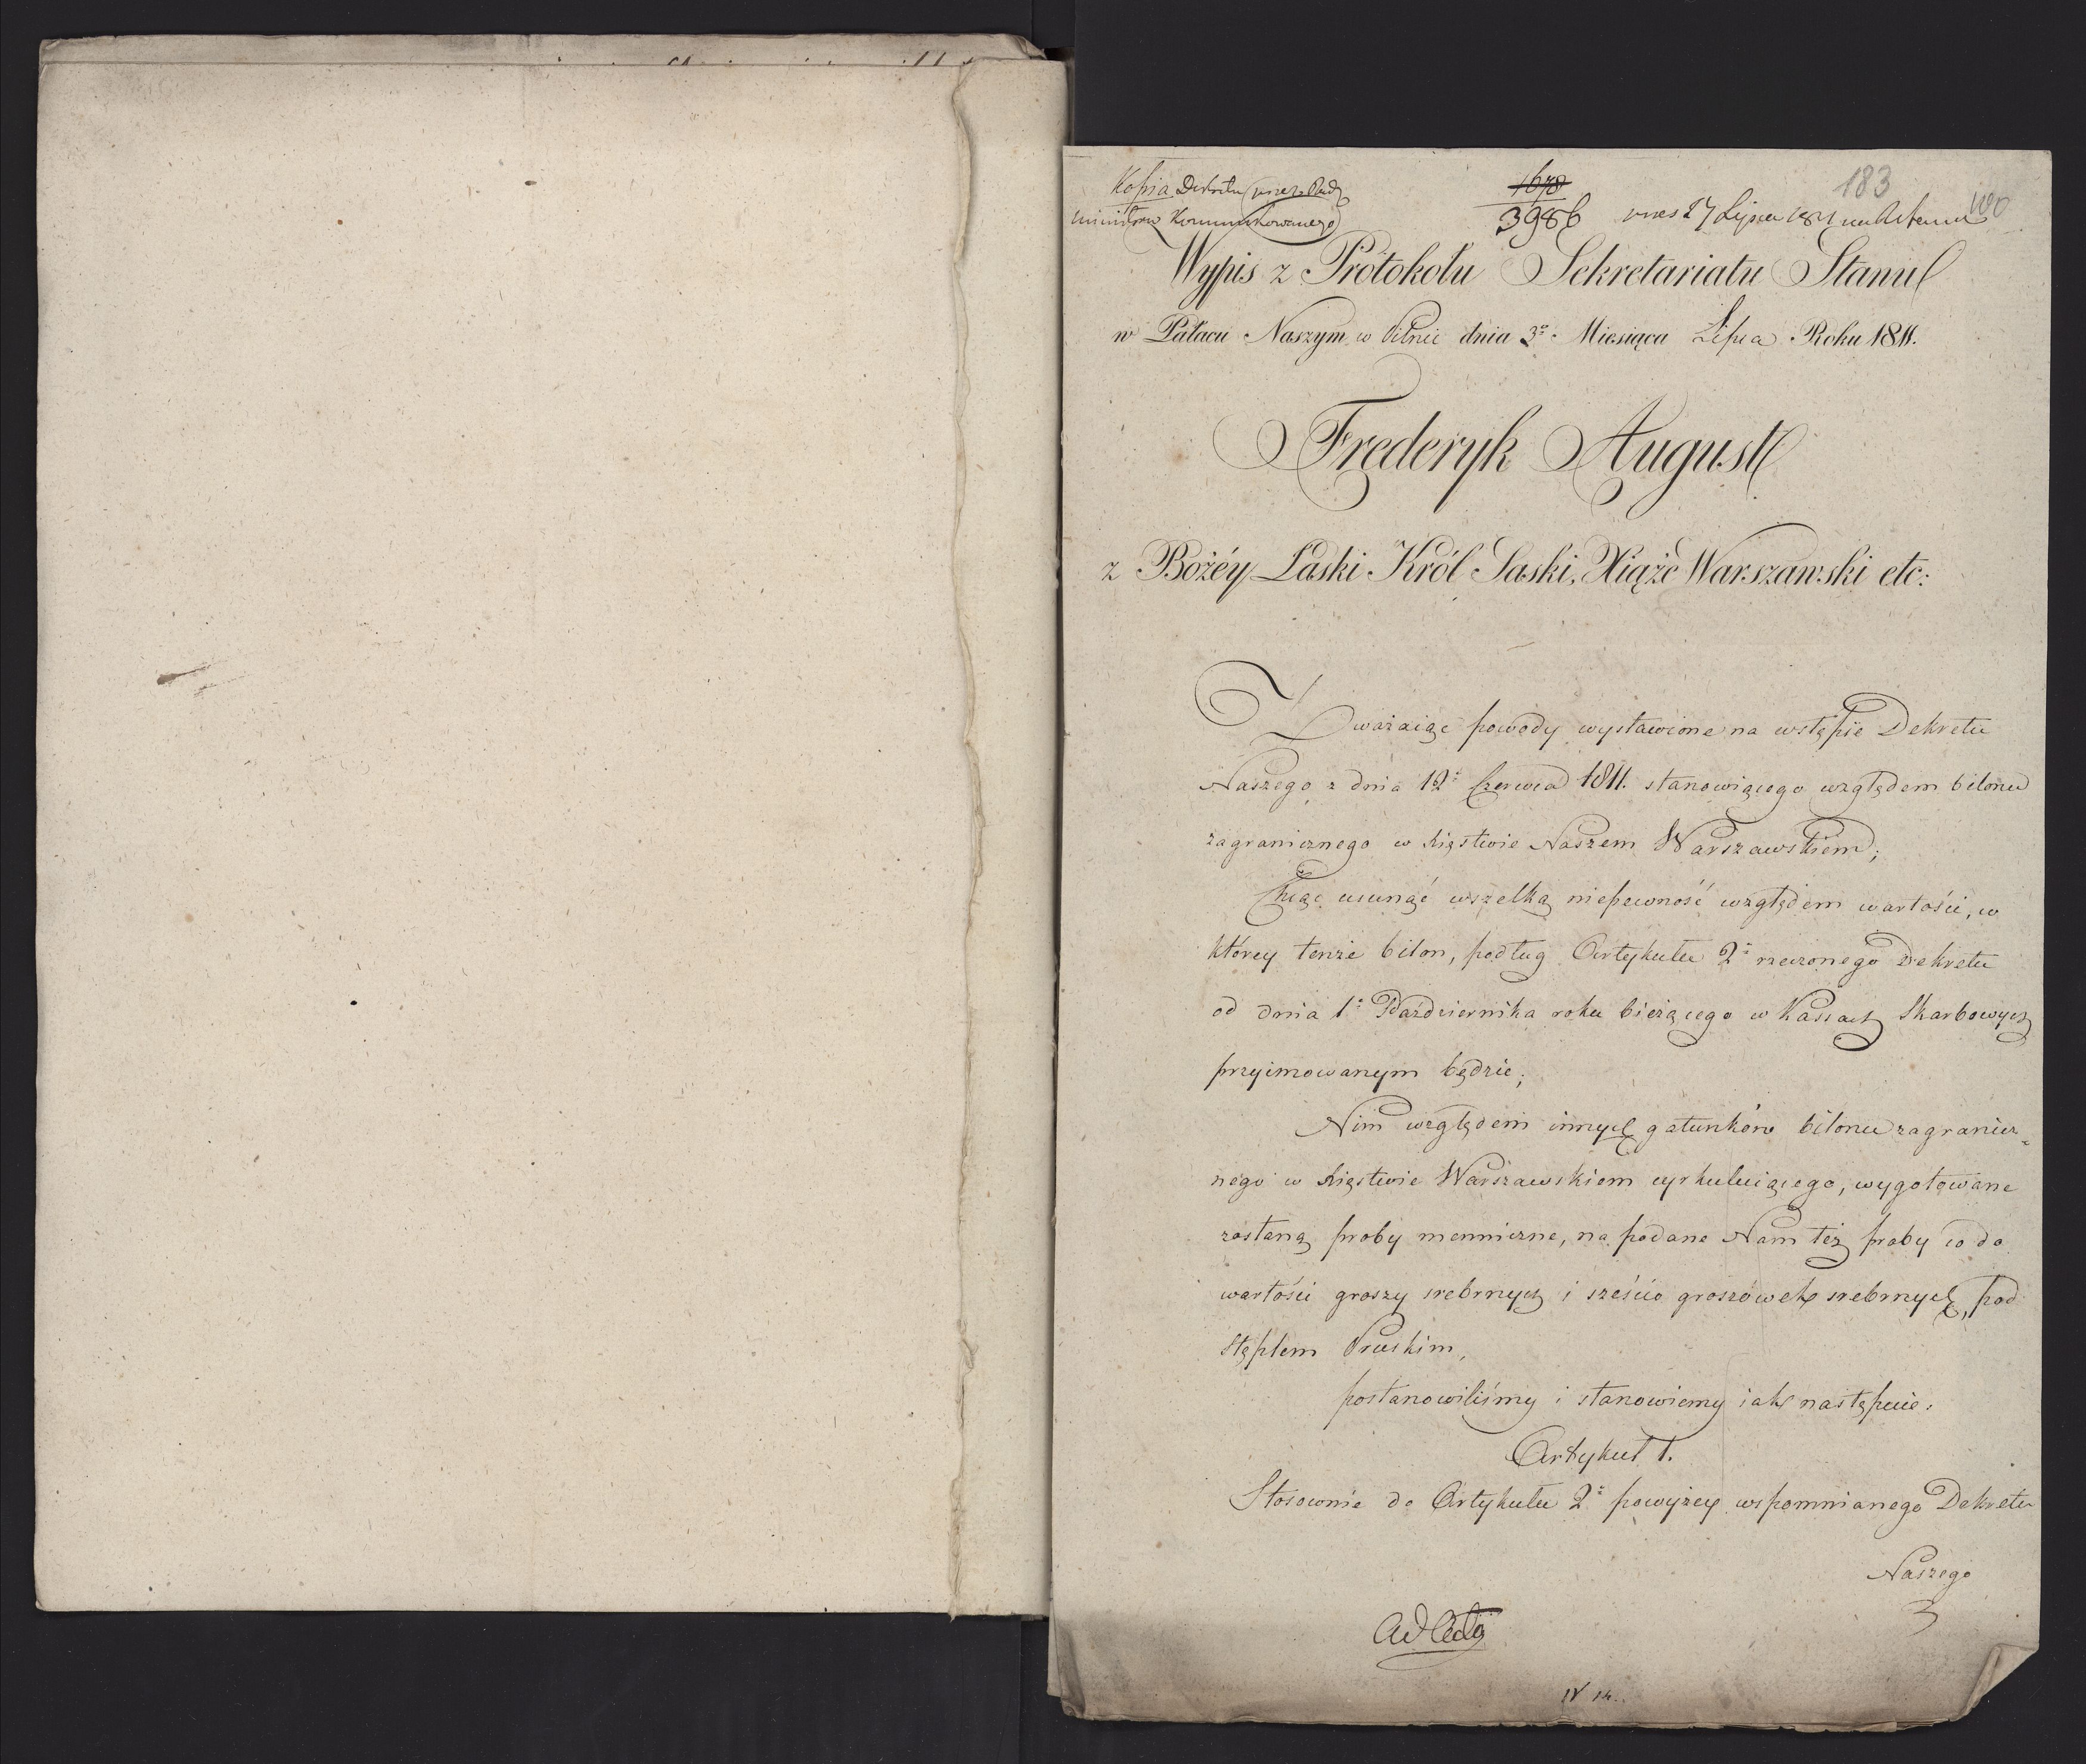 183
Kopia Dekretu przez Radę
Ministrów Kommunikowanego
1678
3986 27 Lipca 1811 100
Wypis z Protokołu Sekretariatu Stanu
w Pałacu Naszym w Pilnic dnia 3º Miesiąca Lipca Roku 1811.
Frederyk August
z Bożéy Łaski Król Saski, Xiąże Warszawski etc:
Zważaiąc powody wystawione na wstępie Dekretu
Naszego z dnia 12º Czerwca 1811. stanowiącego względem bilonu
zagranicznego w Xięstwie Naszem Warszawskiem;
Chcąc usunąć wszelką niepewność względem wartości, w
którey tenże bilon, podług Artykułu 2º rzeczonego Dekretu
od dnia 1º Października roku bieżącego w Kassach Skarbowych
przyimowanym będzie;
Nim względem innych gatunków bilonu zagranicz=
nego w Xięstwie Warszawskiem cyrkuluiącego, wygotowane
zostaną proby mennicze, na podane Nam też proby co do
wartości groszy srebrnych i sześcio groszówek srebrnych, pod
stęplem Pruskim,
postanowiliśmy i stanowiemy iak następuie:
Artykuł 1.
Stosownie do Artykułu 2º powyżey wspomnianego Dekretu
Naszego
Ad Acta
IV 14.